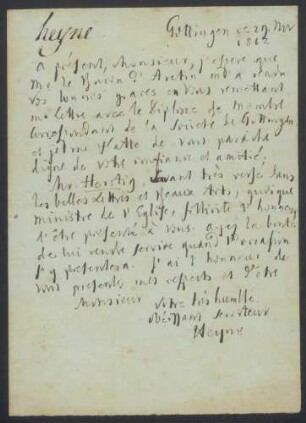 Heyne
Göttingen ce 29. Nov
1812
à présent, Monsieur, j'espere que
Mr le Baron d' Aretin m'a rendu
vos bonnes graces en vous remettant
ma lettre avec le Diplome de Membre
Correspondant de la Societé de Gottingen
et j'etois flatté de vous paroitre
digne de votre confiance et amitié.
Mr. Horstig, savant très versé dans
les belles lettres et beaux Arts, quoique
ministre de l'Eglise, sollicite l'honneur
d'être présenté à vous. ayez la bonté
de lui rendre service quand l'occasion
s'y presentera. J'ai l'honneur de
vous presenter mes respects et d'être
Monsieur votre très humble
obéissant serviteur
Heyne